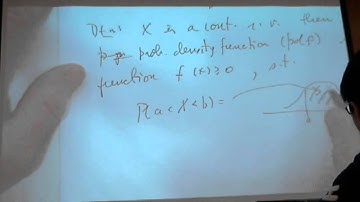 X is a cont. r.v. then
prob. density function (pdf)
function f(x) ≥ 0, s.t.
P(a < X < b) =